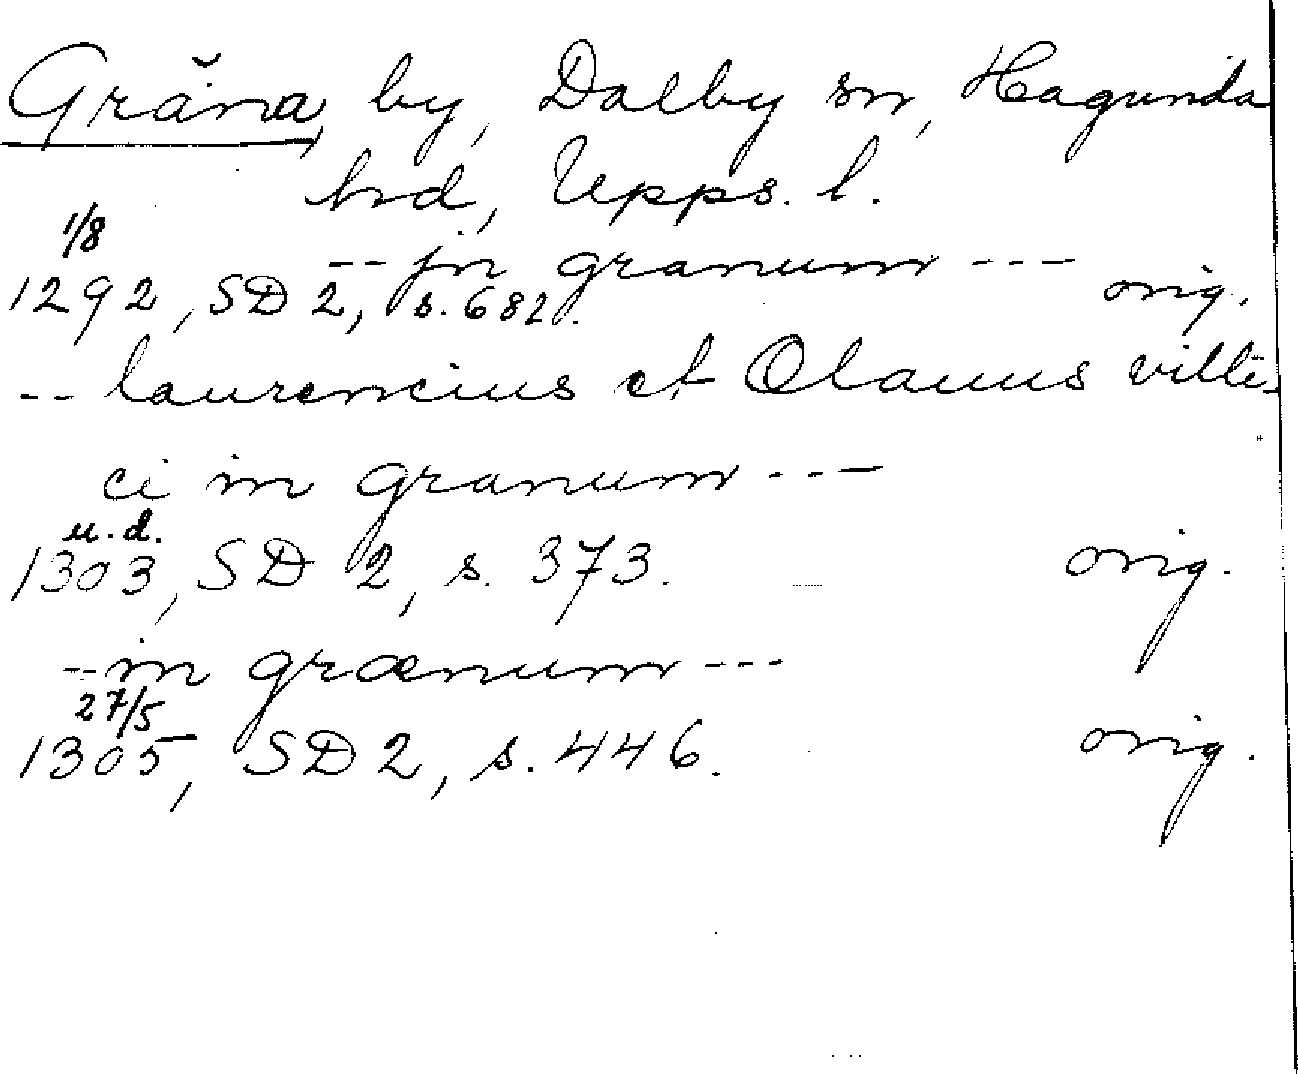 Gräna, by, Dalby sn, Hagunda
hd, Upps. l.
-- jn granum ---
1/8
1292, SD 2, s. 682. orig.
-- laurencius et Olauus villi-
ci in granum ---
u.d.
1303, SD 2, s. 373. orig.
-- in grænum ---
27/5
1305, SD 2, s. 446. orig.